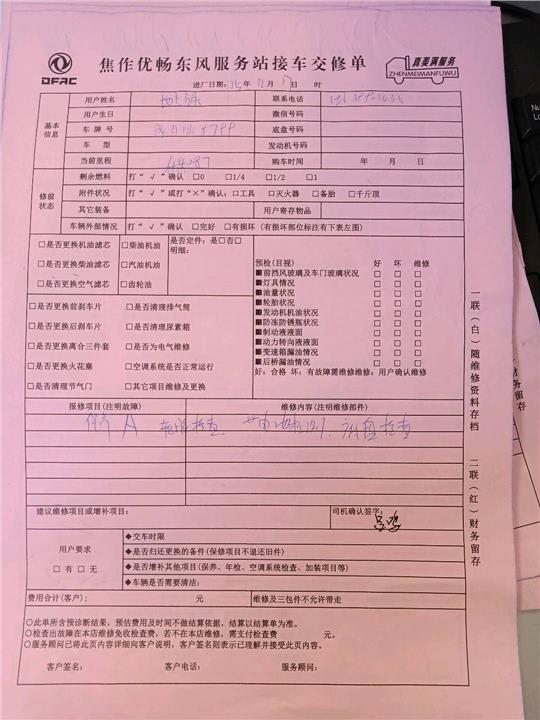 DFAC
焦作优畅东风服务站接车交修单
真美满服务
ZHENMEIMANFUWU
进厂日期: 25 年 12 月 17 日 时
用户姓名 联系电话
基本信息
用户生日 微信号码
车牌号 底盘号码
车型 发动机号码
当前里程 44287 购车时间 年 月 日
修前状态
剩余燃料 打“√”确认 □0 □1/4 □1/2 □1
附件状况 打“√”或打“×”确认: □工具 □灭火器 □备胎 □千斤顶
其它装备 用户寄存物品
车辆外部情况 打“√”确认 □完好 □有损坏 (有损坏部位标注有下表左图)
□是否更换机油滤芯 □柴油机油 是否定件: 是□否□
明细:
□是否更换柴油滤芯 □汽油机油
□是否更换空气滤芯 □齿轮油
预检(目视) 好 坏 维修
■前挡风玻璃及车门玻璃状况 □ □ □
■灯具情况 □ □ □
■油量状况 □ □ □
■轮胎状况 □ □ □
■发动机机油状况 □ □ □
■防冻防锈瓶状况 □ □ □
■制动液液面 □ □ □
■动力转向液液面 □ □ □
■变速箱漏油情况 □ □ □
■后桥漏油情况 □ □ □
好: 合格 坏: 有故障需维修维修: 用户确认维修
□是否更换前刹车片 □是否清理排气筒
□是否更换后刹车片 □是否清理尿素箱
□是否更换离合三件套 □是否为电气维修
□是否更换火花塞 □空调系统是否正常运行
□是否清理节气门 □其它项目维修及更换
报修项目(注明故障) 维修内容(注明维修部件)
保养 A 检查 检查
建议维修项目或增补项目: 司机确认签字:
用户要求
□有 □无
◆交车时限
◆是否归还更换的备件(保修项目不退还旧件)
◆是否增补其他项目(保养、年检、空调系统检查、加装项目等)
◆车辆是否需要清洁:
费用合计(客户): 元 维修及三包件不允许带走
○此单所含预诊断结果,预估费用及时间不做结算依据,结算以结算单为准。
○检查出故障在本店维修免收检查费,若不在本店维修,需支付检查费 元。
○服务顾问已将此页内容详细向客户说明,客户签名则表示已理解并接受此页内容。
客户签名: 客户电话: 服务顾问:
一联(白)随维修资料存档 二联(红)财务留存
财务留存